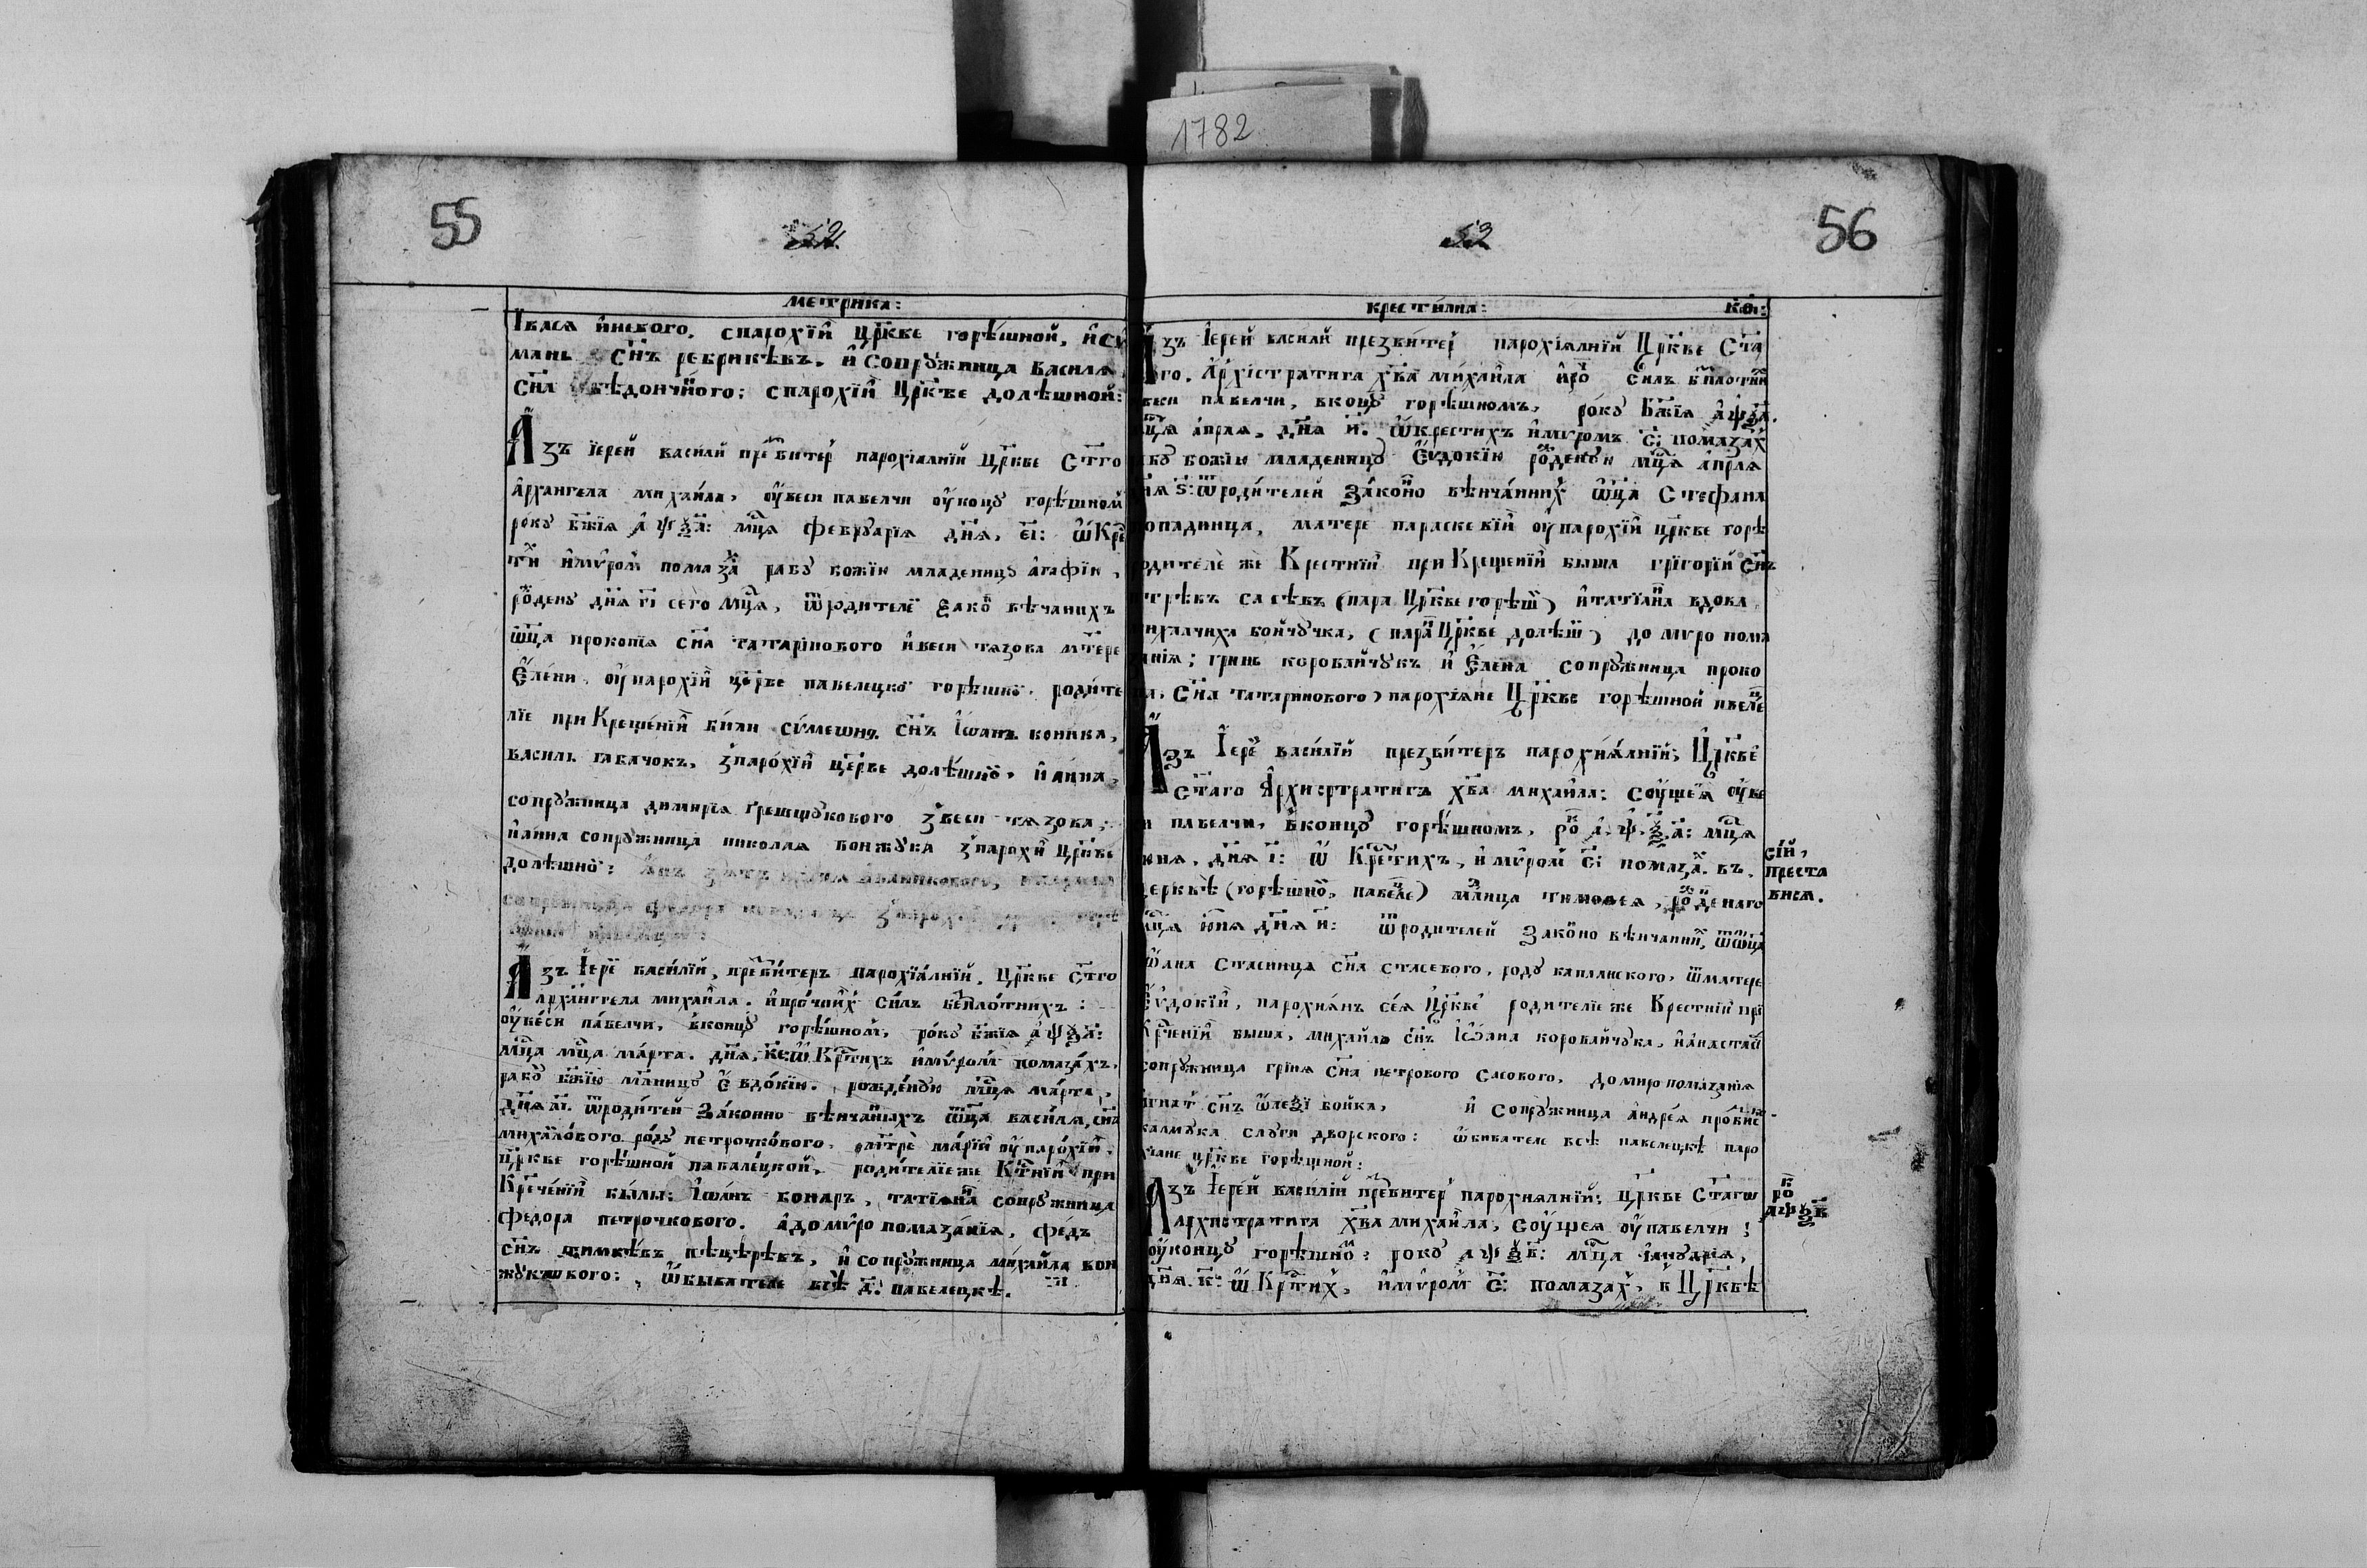 1782
55
52
метрика:
Їваcѧ инского. спарохїй Црк҃ве горѣшной, и
мань Сн҃ъ ребрикѣвъ. и сопрꙋжница Василѧ
Сн҃а вѣдончиного: спарохїй Црк҃ве долѣшной:
Азъ їерей василй парохїалнїй Црк҃ве Ст҃го
Архангела михаила, оувеси павелчи оуконцꙋ горѣшном
рокꙋ бж҃їѧ ҂аѱѯ҃а: мц҃а феврꙋарїѧ днѧ, е҃і: ѿ Кре
ти имѵром помаза рабꙋ божїю младеницꙋ агафїю,
рожденꙋ днѧ г҃і сего мц҃а, ѿродителей законо вѣчанихъ
ѿц҃а прокопїа сн҃а татаринового ивеси тѧзова мт҃ере
Єлени оупарохїй церкве павелецко горѣшно. родите
лїе при Крещенїй били сн҃ъ Їѡанъ коника,
василь габачокъ, зпарохїй церкве долѣшно, и анна,
сопрꙋжница димирїа грещꙋкового звеси тѧзова,
и анна сопрꙋжница николаѧ бонжꙋка зпарохи Црк҃ве
долѣшно:
Азъ Їерей василїй, презвитеръ парохїалнїй, Црк҃ве Ст҃го
Архангела михаила. ипрочиих силъ безплотнихъ:
оувеси павелчи, вконцꙋ горѣшном, рокꙋ бж҃їѧ ҂аѱѯ҃а:
мц҃а мц҃а марта. днѧ, к҃е ѿКрⷭтихъ имѵром помазахъ.
рабꙋ бж҃їю млⷣницꙋ Євдокїю. рожденꙋю мц҃а марта,
днѧ ѿродитей Законно вѣнчаныхъ ѿц҃а василѧ, сн҃а
михайлового родꙋ петрочкового, мт҃ре марїй оупарохїй.
црк҃ве горѣшной павалецкой, родителїе же Кⷭтнїй при
Крⷭченїй были: Їѡанъ бонаръ, татїѧна сопрꙋжница
федора петрочкового. адомѵро помазанїѧ, федъ
сн҃ъ тимкѣвъ пѣцѣрѣвъ, и сопрꙋжница михайла бон
жꙋкового: ѿбыватели всѣ д҃: павелецкѣ.
56
52
крестилна: к҃ѳ:
Азъ Їерей василй презвитер парохїалнїй Црк҃ве Ст҃а
го. Архїстратига хв҃а михаила про силъ
веси павелчи, вконцꙋ горѣшномъ, рокꙋ Бж҃їѧ ҂аѱѯ҃а.
мц҃а апрлѧ, днѧ и҃. ѿкрестихъ имѵромъ С҃: помазах
бꙋ божїю младеницꙋ Євдокїю рожденꙋю мц҃а апрлѧ
нѧ ѕ҃: ѿродителей Законно вѣнчанних ѿц҃а Стефана
опадница, матере параскевїй оупарохїй црк҃ве горѣ
одителе же Крестнїй при Крещенїй быша грїгорїй сн҃ъ
трѣвъ сасѣвъ (пара Црк҃ве горѣш) итатїѧна вдова
ихалчиха бойчꙋчка, (пара Црк҃ве долѣш) до мѵро пома
анїѧ; гринь коровайчꙋкъ и Єлена сопрꙋжница проко
а, Сн҃а татаринового) парохїѧне Црк҃ве горѣшной
Азъ Їерей василїй презвитеръ парохиѧлнїй; Црк҃ве
Ст҃аго Архистратига хв҃а михаила: Соущеѧ оуве
и павелчи, вконцꙋ горѣшномъ, ро҃к ҂а.ѱ.ѯ.а҃: мц҃а
юнѧ, днѧ і҃: ѿ Крⷭтихъ, имѵром С҃: помаза. въ.
церквѣ (горѣшно, павелє) млⷣнца тимоѳеѧ, рожденаго
мц҃а юнѧ днѧ и҃: ѿродителей Законо вѣнчанни, ѿѿц҃а
Їѡана Стасница сн҃а стасевого, родꙋ каплинского, ѿматере
Євдокїй, парохиѧнъ сеѧ Црк҃ве родителїе же Крестнїй при
Крⷭченїй быша, михайло сн҃ъ Їѡана коровайчꙋка, и анастасї
сопрꙋжница гринѧ сн҃а петрового Сасового, домиро помазанїѧ
игнат сн҃ъ ѿлеѯї бойка, и Сопрꙋжница андреѧ
калмꙋка слꙋги дворского: ѿбивателе всѣ павелецкѣ паро
хїане црк҃ве горѣшной:
сїй,
преста
висѧ.
Азъ Їерей василїй презвитер парохиѧлнїй: Црк҃ве Ст҃агѡ
Архистратига хв҃а михаила, Соущеѧ оупавелчи;
оуконцꙋ горѣшно: рокꙋ ҂аѱѯ҃в: мц҃а їанꙋарїѧ,
днѧ. к҃: ѿ Крⷭтих, имѵром С҃: помазах, в Црк҃вѣ
рок
҂аѱѯ҃в